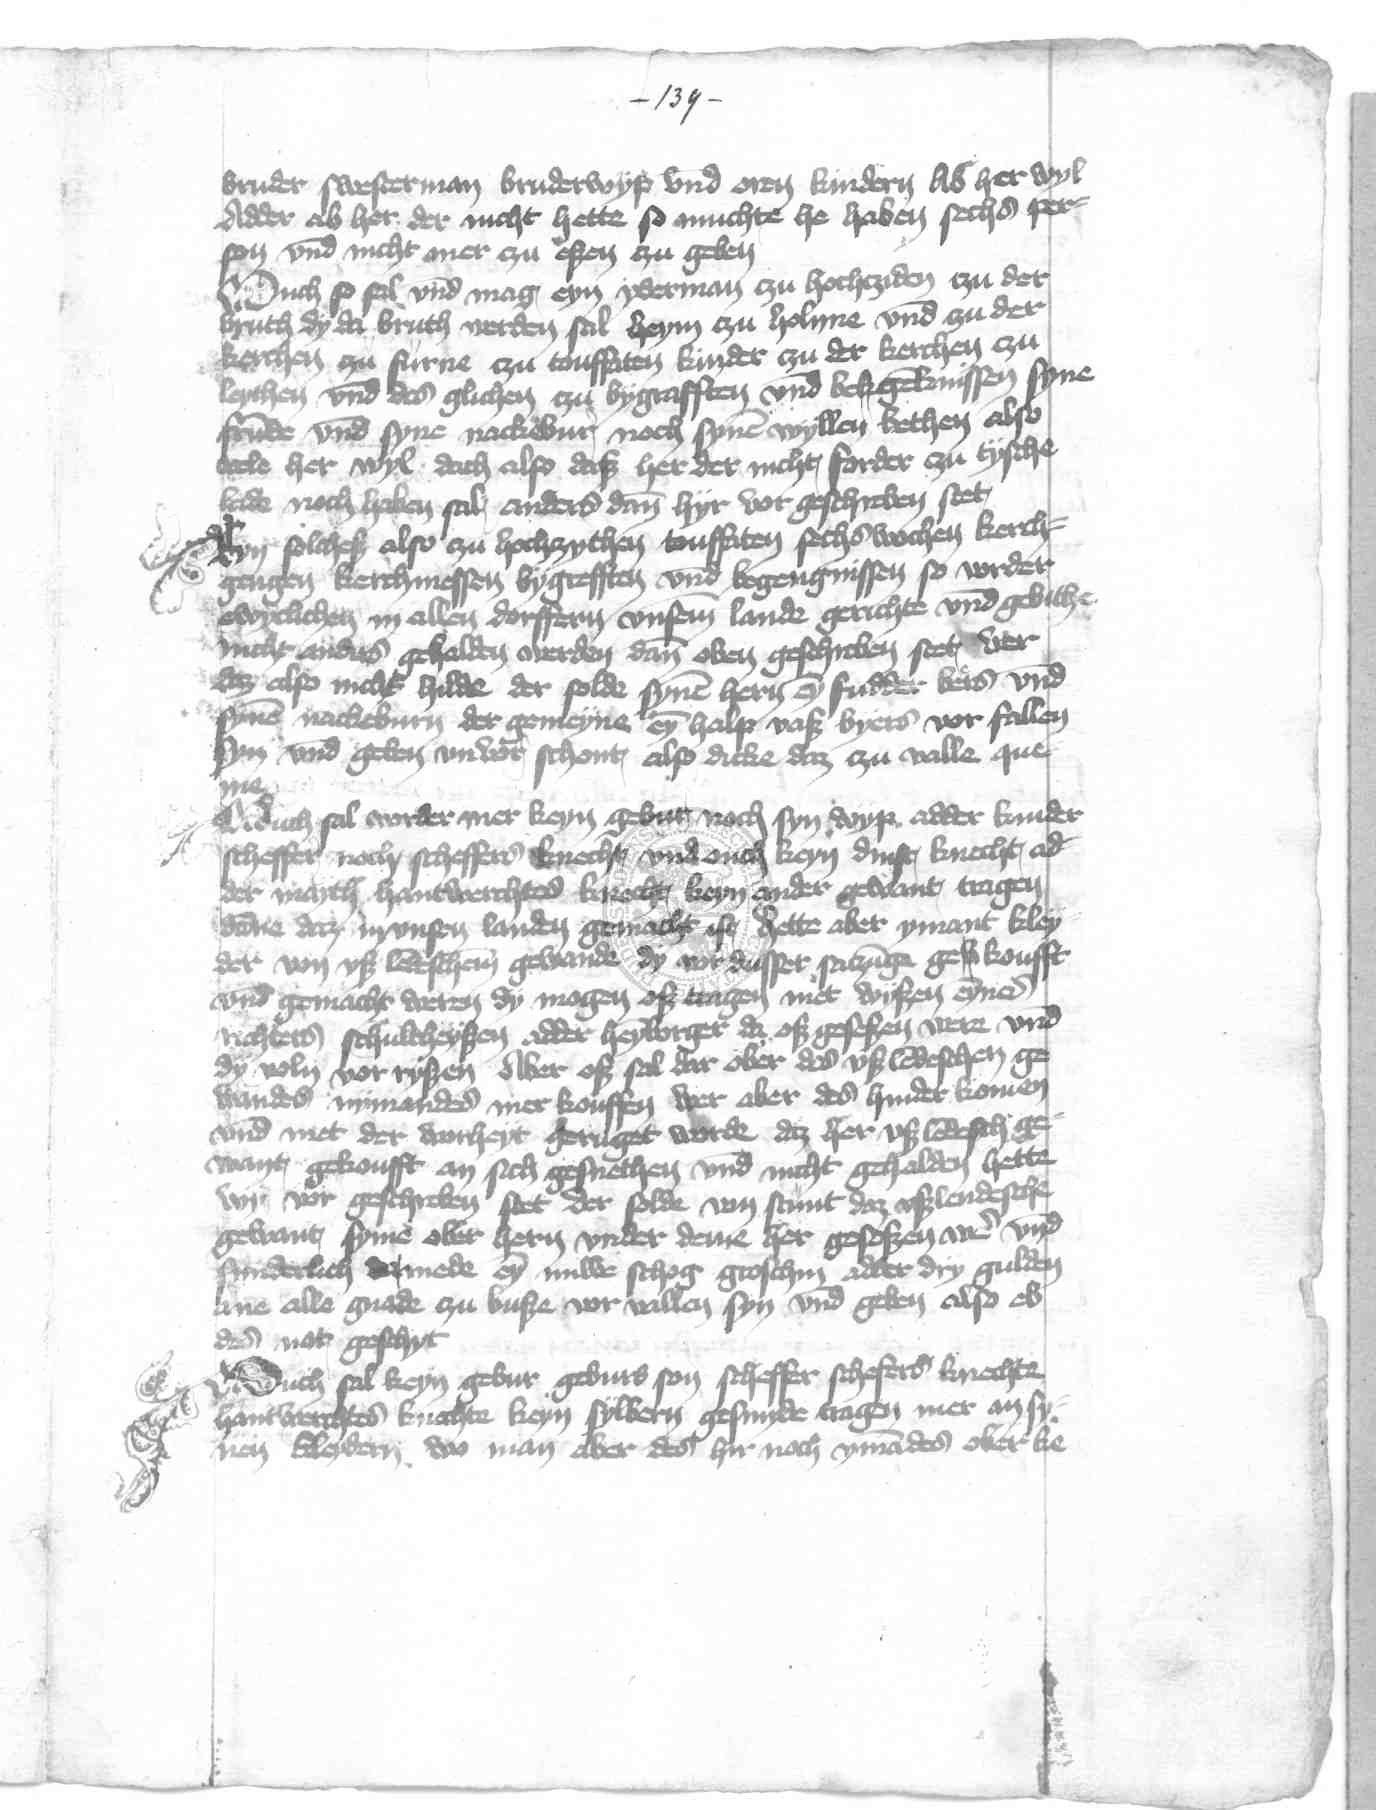 - 139 -
bruder swesterman bruderwyp vnd oren kindern Ab her wyl
Adder ab her der nicht hette so muchte he haben sechs per-
son vnd nicht mer czu eßen czu geben
Ouch so sal vnd mag eyn yderman czu hochcziden czu der
bruth dy da bruth werden sal heym czu holnne vnd zu der
kerchen zu furne czu touffaten kinder czu der kerchen czu
leythen vnd des glichen czu bygrafften vnd begengknissen syne
frūde vnd syne nackebur noch synē wyllen bethen also
vele her wyl doch also daß her der nicht forder czu tysche
bede noch haben sal anders dan hyr vor geschreben stet
Eyn solcheß also zu hochzythen touffaten sechswochen kerch-
gengen kerchmessen bygrefften vnd begengnissen so vorder
ewyclichen in allen dorffern vnserm lande gerichte vnd gebithe
nicht anders gehalden werden dan oben geschreben stet wer
daz also nicht hilde der solde synē hern eȳ fudder bers vnd
synē nackeburn der gemeyne eȳ halp vaß byers vor fallen
syn vnd geben vnvorschont also dicke daz zu valle que-
me
Ouch sal vorder mer keyn gebur noch syn wyp adder kinder
scheffer noch scheffers knecht vnd ouch keyn dinst knecht ad-
der mayth hantwerchtes knecht keyn ander gewant tragen
danne daz in vnsen landen gemacht ist Hette aber ymant kley-
der von vßlendeschem gewande dy vor dusser satzūge gekoufft
vnd gemacht weren dy mogen sy tragen met wyßen eynes
richters schultheyßen adder heymborger da sy geseßen were vnd
dy voln vor ryßen Aber eß sal dar ober des vßlendeschen ge-
wandes nymandes mer kouffen wer aber des hinder komen
vnd met der worheyt geruget worde daz her vßlendesch ge-
want gekoufft an sich gesnethen vnd nicht gehalden hette
wy vor geschreben stet der solde von stunt daz vßlendesche
gewant syme ober hern vnder deme her geseßen wer vnd
sunderlich dar mede eȳ nuwe schog groschin adder dry gulden
ane alle gnade czu buße vor vallen syn vnd geben also ab
des not geschyt
Ouch sal keyn gebur geburs son scheffer schefers knechte
hantwerchtes knechte keyn sylbern gesmyde tragen mer an sy-
nen kleydern wo man aber des hir noch ymādes ober ke